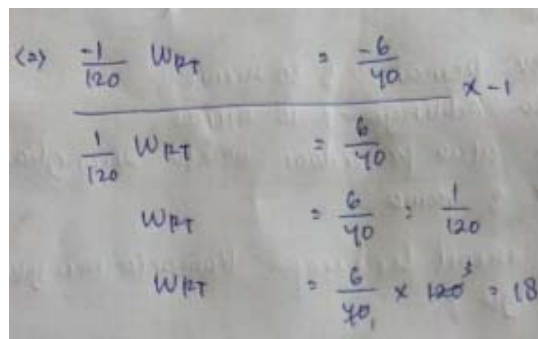 <=> -1/120 WRT = -6/40
x -1
1/120 WRT = 6/40
WRT = 6/40 : 1/120
WRT = 6/40 x 120 3 = 18